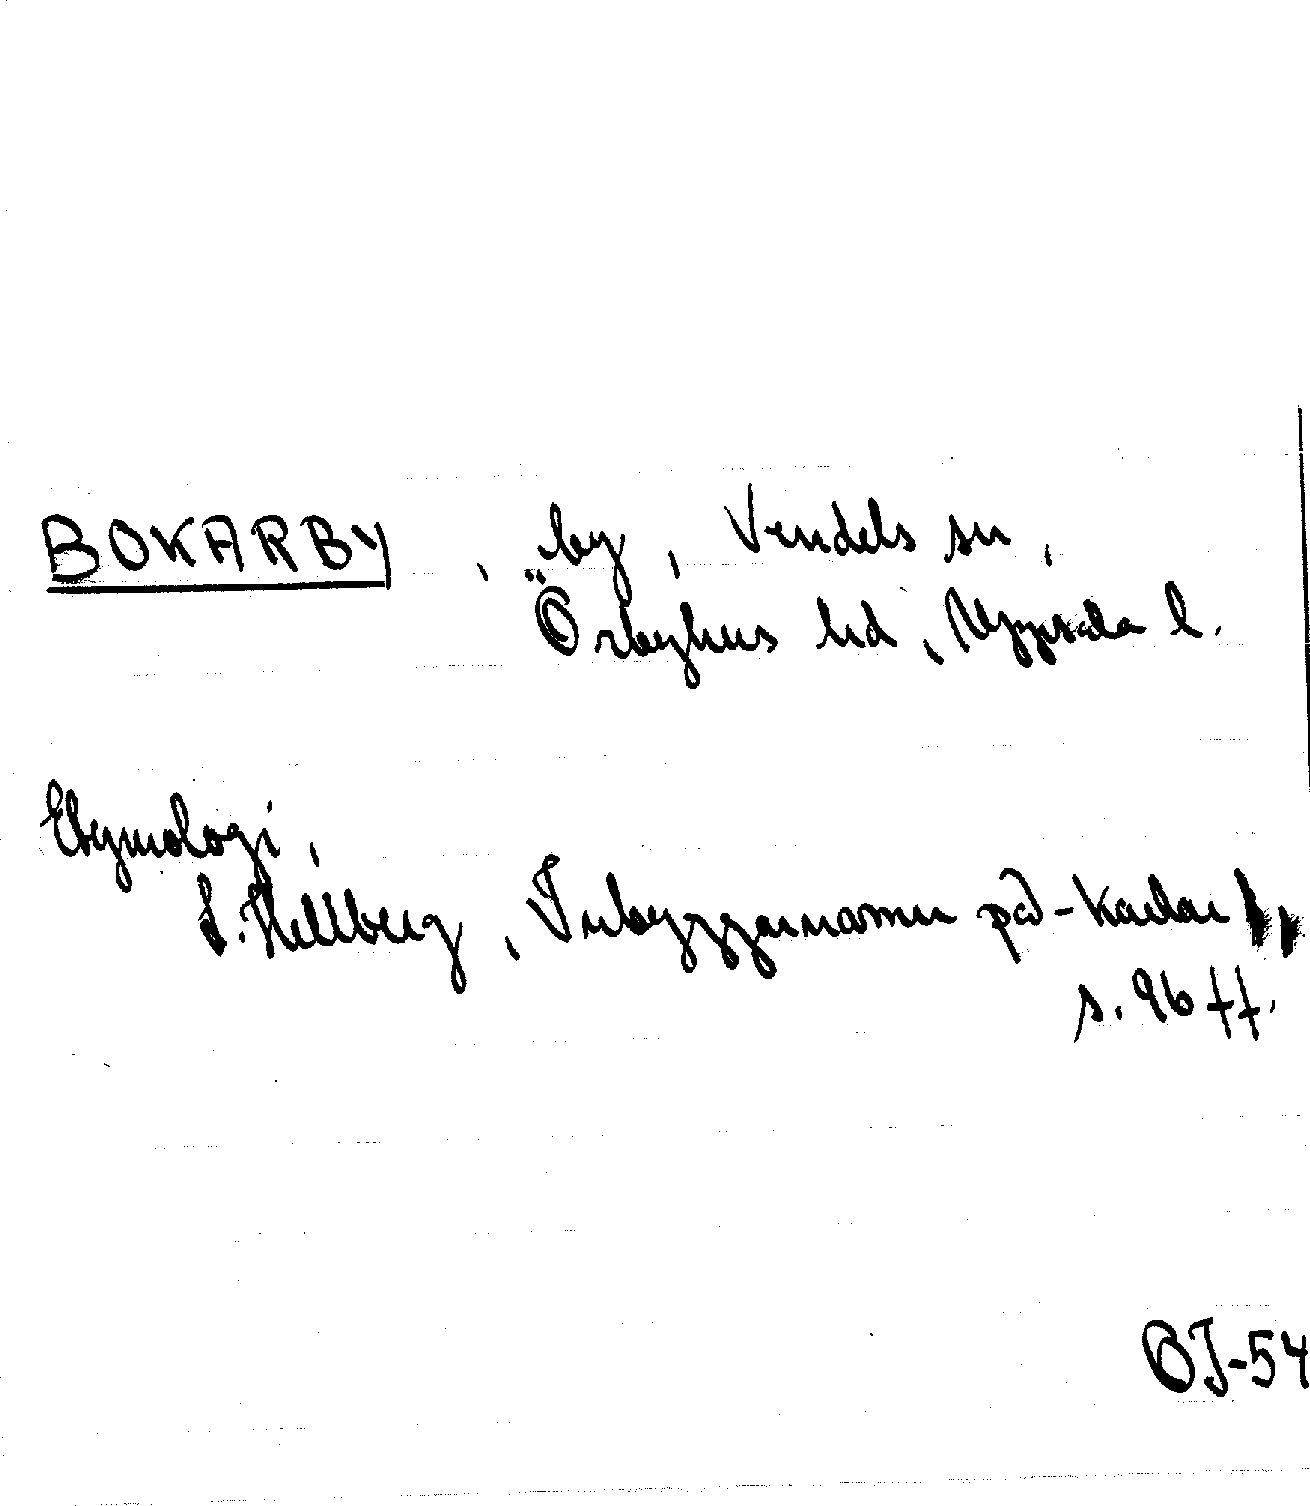 BOKARBY, by, Vendels sn,
Örbyhus hd, Uppsala l.
Etymologi,
L. Hellberg, Inbyggarnamn på -karlar
s. 96 ff.
BJ-54